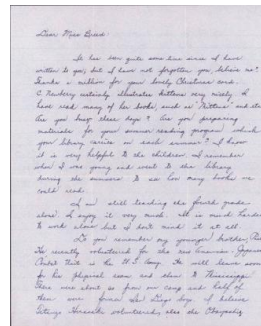 Dear Miss Breed:
It has been quite some time since I have
written to you, but I have not forgotten you, believe me!
Thanks a million for your lovely Christmas card.
C. Newberry certainly illustrates kittens very nicely. I
have read many of her books, such as "Mittens" and etc.
Are you busy these days? Are you preparing
materials for your summer reading program which
your library carries on each summer? I know
it is very helpful to the children. I remember
when I was young and went to the library
during the summers to see how many books we
could read.
I am still teaching the fourth grade
alone. I enjoy it very much. It is much harder
to work alone but I don't mind it at all.
Do you remember my younger brother,
He recently volunteered for the new American Japanese
Combat Unit in the U.S. Army. He will leave soon
for his physical exam and then to Mississippi.
There were about 20 from our camp and half of
them were former San Diego boys. I believe
Tetsuzo Hirasaki volunteered, also the Obayashi